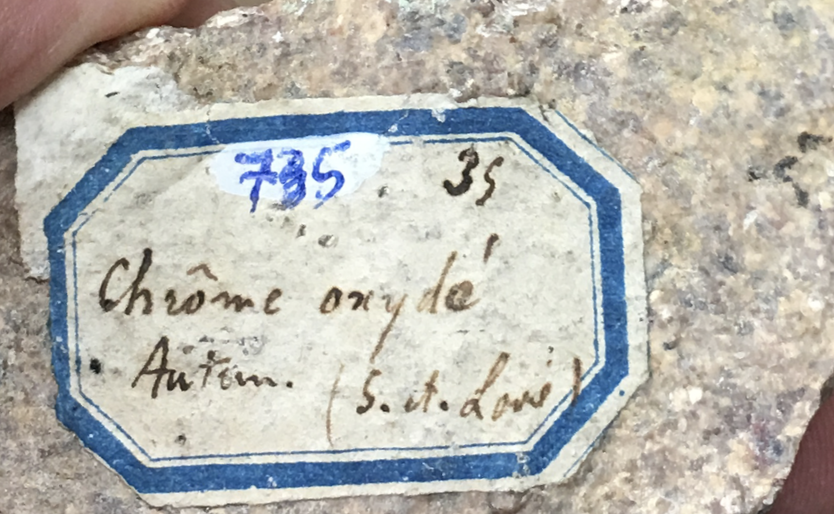 735 35
Chrôme oxydé
Autun.
(S. et. Loire)